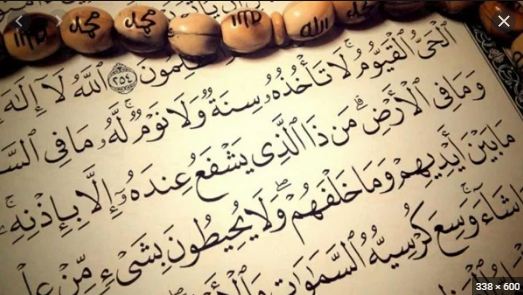 محمد
محمد
الله
ـلِمُونَ ٢٥٤ ٱللَّهُ لَآ إِلَٰهَ
ٱلْحَىُّ ٱلْقَيُّومُ لَا تَأْخُذُهُۥ سِنَةٌ وَلَا نَوْمٌ لَّهُۥ مَا فِى ٱلسَّـ
وَمَا فِى ٱلْأَرْضِ مَن ذَا ٱلَّذِى يَشْفَعُ عِندَهُۥٓ إِلَّا بِإِذْنِهِۦ
مَا بَيْنَ أَيْدِيهِمْ وَمَا خَلْفَهُمْ وَلَا يُحِيطُونَ بِشَىْءٍ مِّنْ عِلْـ
شَآءَ وَسِعَ كُرْسِيُّهُ ٱلسَّمَٰوَٰتِ وَٱلْأَرْ
338 × 600